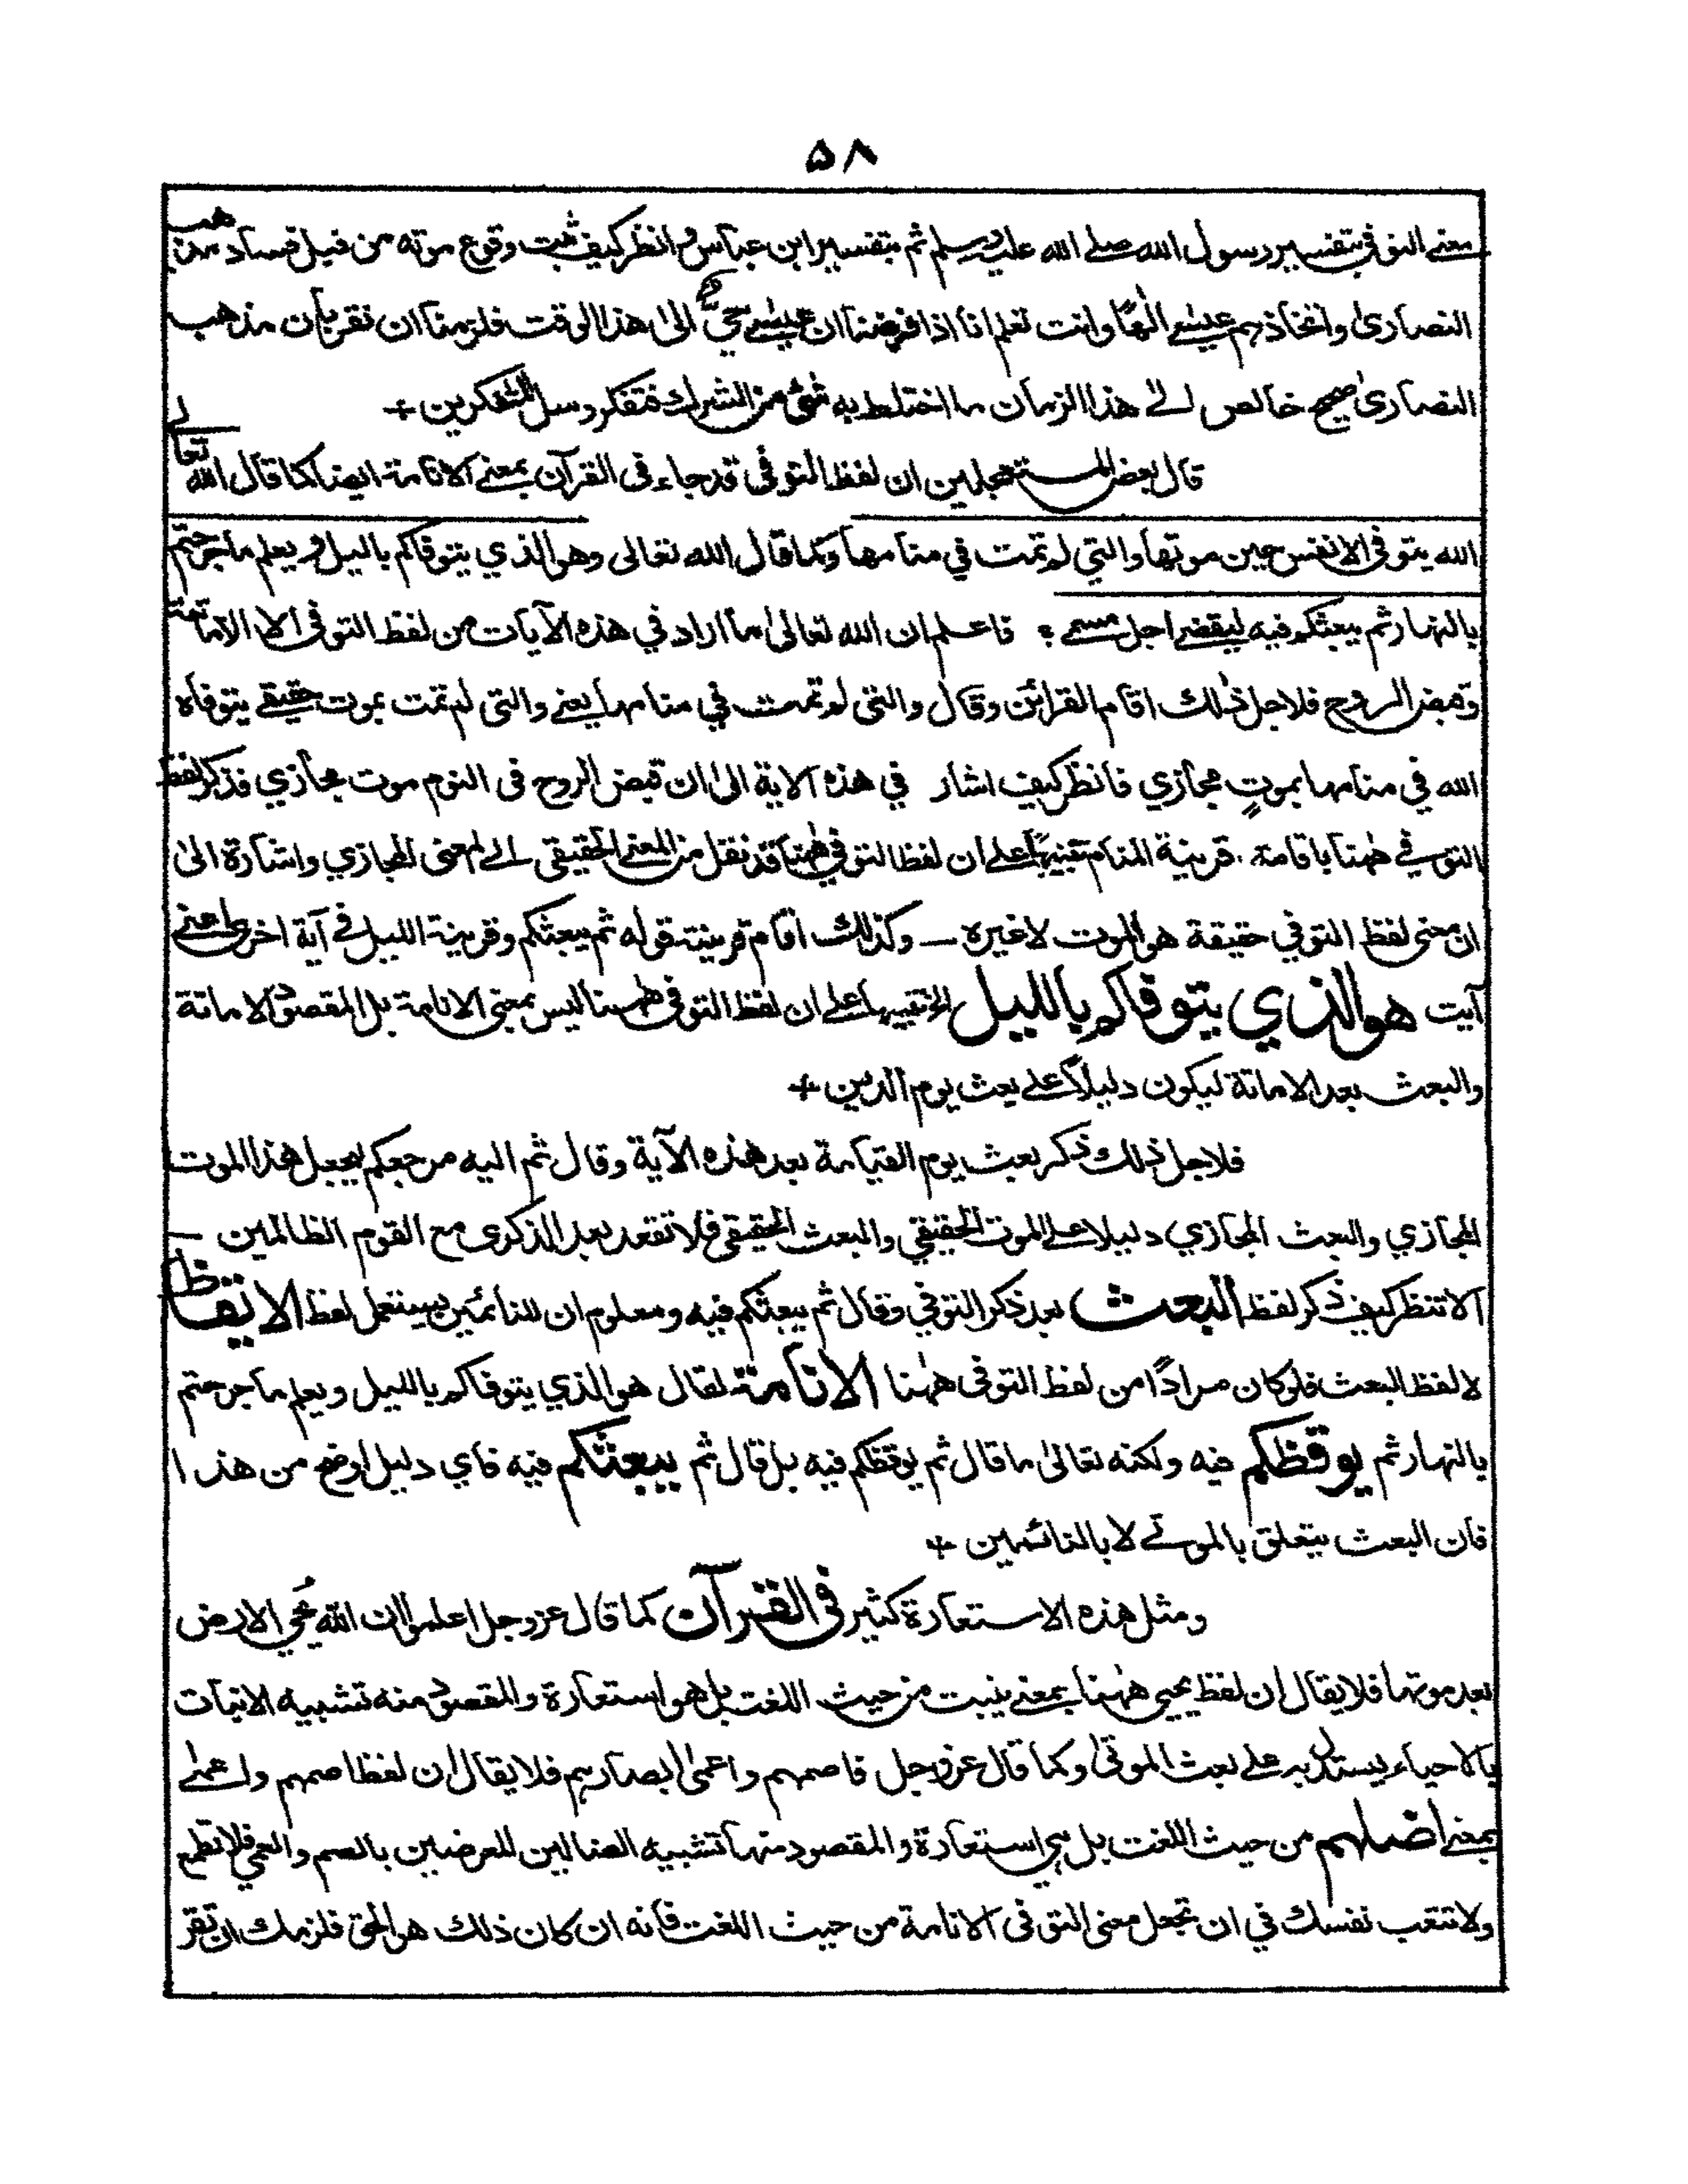 ۵۸
معنے التوفی بتفسیر رسول الله صلے الله علیہ وسلم ثم بتفسیر ابن عباس وانظر کیف ثبت وقوع موته من قبل فساد مذهب
النصاریٰ واتخاذهم عیسٰے الٰهًا وانت تعلم انا اذا فرضنا ان عیسٰے حیٌّ الیٰ هذا الوقت فلزمنا ان نقر بأن مذهب
النصاریٰ صحیح خالص الےٰ هذا الزمان ما اختلط به شئ من الشرك فتفکر وسل المتفکرین +
قال بعض المستعجلین ان لفظ التوفّی قد جاء فی القرآن بمعنے الانامة ایضا کما قال الله تعالے
الله یتوفی الانفس حین موتها والتی لم تمت فی منامها وکما قال الله تعالی وهو الذی یتوفاکم بالیل ویعلم ما جرحتم
بالنهار ثم یبعثکم فیه لیقضے اجل مسمے ؞ فاعلم ان الله تعالیٰ ما اراد فی هذه الآیات من لفظ التوفی الا الاماتة
وقبض الروح فلاجل ذٰلك اقام القرائن وقال والتی لم تمت فی منامها یعنے والتی لم تمت بموت حقیقے یتوفاه
الله فی منامها بموتٍ مجازی فانظر کیف اشار فی هذه الاٰیة الیٰ ان قبض الروح فی النوم موت مجازی فذکر لفظ
التوفے فی هٰهنا باقامة قرینة المنام تنبیهًا علے ان لفظ التوفی هٰهنا قد نقل من المعنے الحقیقی الے المعنی المجازی واشارة الیٰ
ان معنی لفظ التوفی حقیقة هو الموت لا غیره — وکذلك اقام قرینة قوله ثم یبعثکم وقرینة اللیل فے آیة اخریٰ اعنے
آیت هو الذی یتوفاکم باللیل الخ تنبیها علے ان لفظ التوفی هٰهنا لیس بمعنی الانامة بل المقصود الاماتة
والبعث بعد الاماتة لیکون دلیلًا علے بعث یوم الدین +
فلاجل ذٰلك ذکر بعث یوم القیامة بعد هذه الآیة وقال ثم الیه مرجعکم لیجعل هذا الموت
المجازی والبعث المجازی دلیلا علے الموت الحقیقی والبعث الحقیقی فلا تقعد بعد الذکری مع القوم الظالمین —
الا تنظر کیف ذکر لفظ البعث بعد ذکر التوفی وقال ثم یبعثکم فیه ومعلوم ان للنائمین یستعمل لفظ الایقاظ
لا لفظ البعث فلو کان مرادًا من لفظ التوفی هٰهنا الانامة لقال هو الذی یتوفاکم باللیل ویعلم ما جرحتم
بالنهار ثم یوقظکم فیه ولکنه تعالیٰ ما قال ثم یوقظکم فیه بل قال ثم یبعثکم فیه فای دلیل اوضح من هذا
فان البعث یتعلق بالموتے لا بالنائمین +
ومثل هذه الاستعارة کثیر فی القرآن کما قال عزوجل اعلموا ان اللّٰه یُحی الارض
بعد موتها فلا یقال ان لفظ یحیی هٰهنا بمعنے ینبت من حیث اللغت بل هو استعارة والمقصود منه تشبیه الانبات
بالاحیاء لیستدل به علے بعث الموتیٰ وکما قال عزوجل فاصمهم واعمیٰ ابصارهم فلا یقال ان لفظ اصمهم واعمےٰ
بمعنے اضلهم من حیث اللغت بل هی استعارة والمقصود منها تشبیه الضالین المعرضین بالصم والعمی فلا تطمع
ولا تتعب نفسك فی ان تجعل معنی التوفی الانامة من حیث اللغت فانه ان کان ذلك هو الحق فلزمك ان تقر